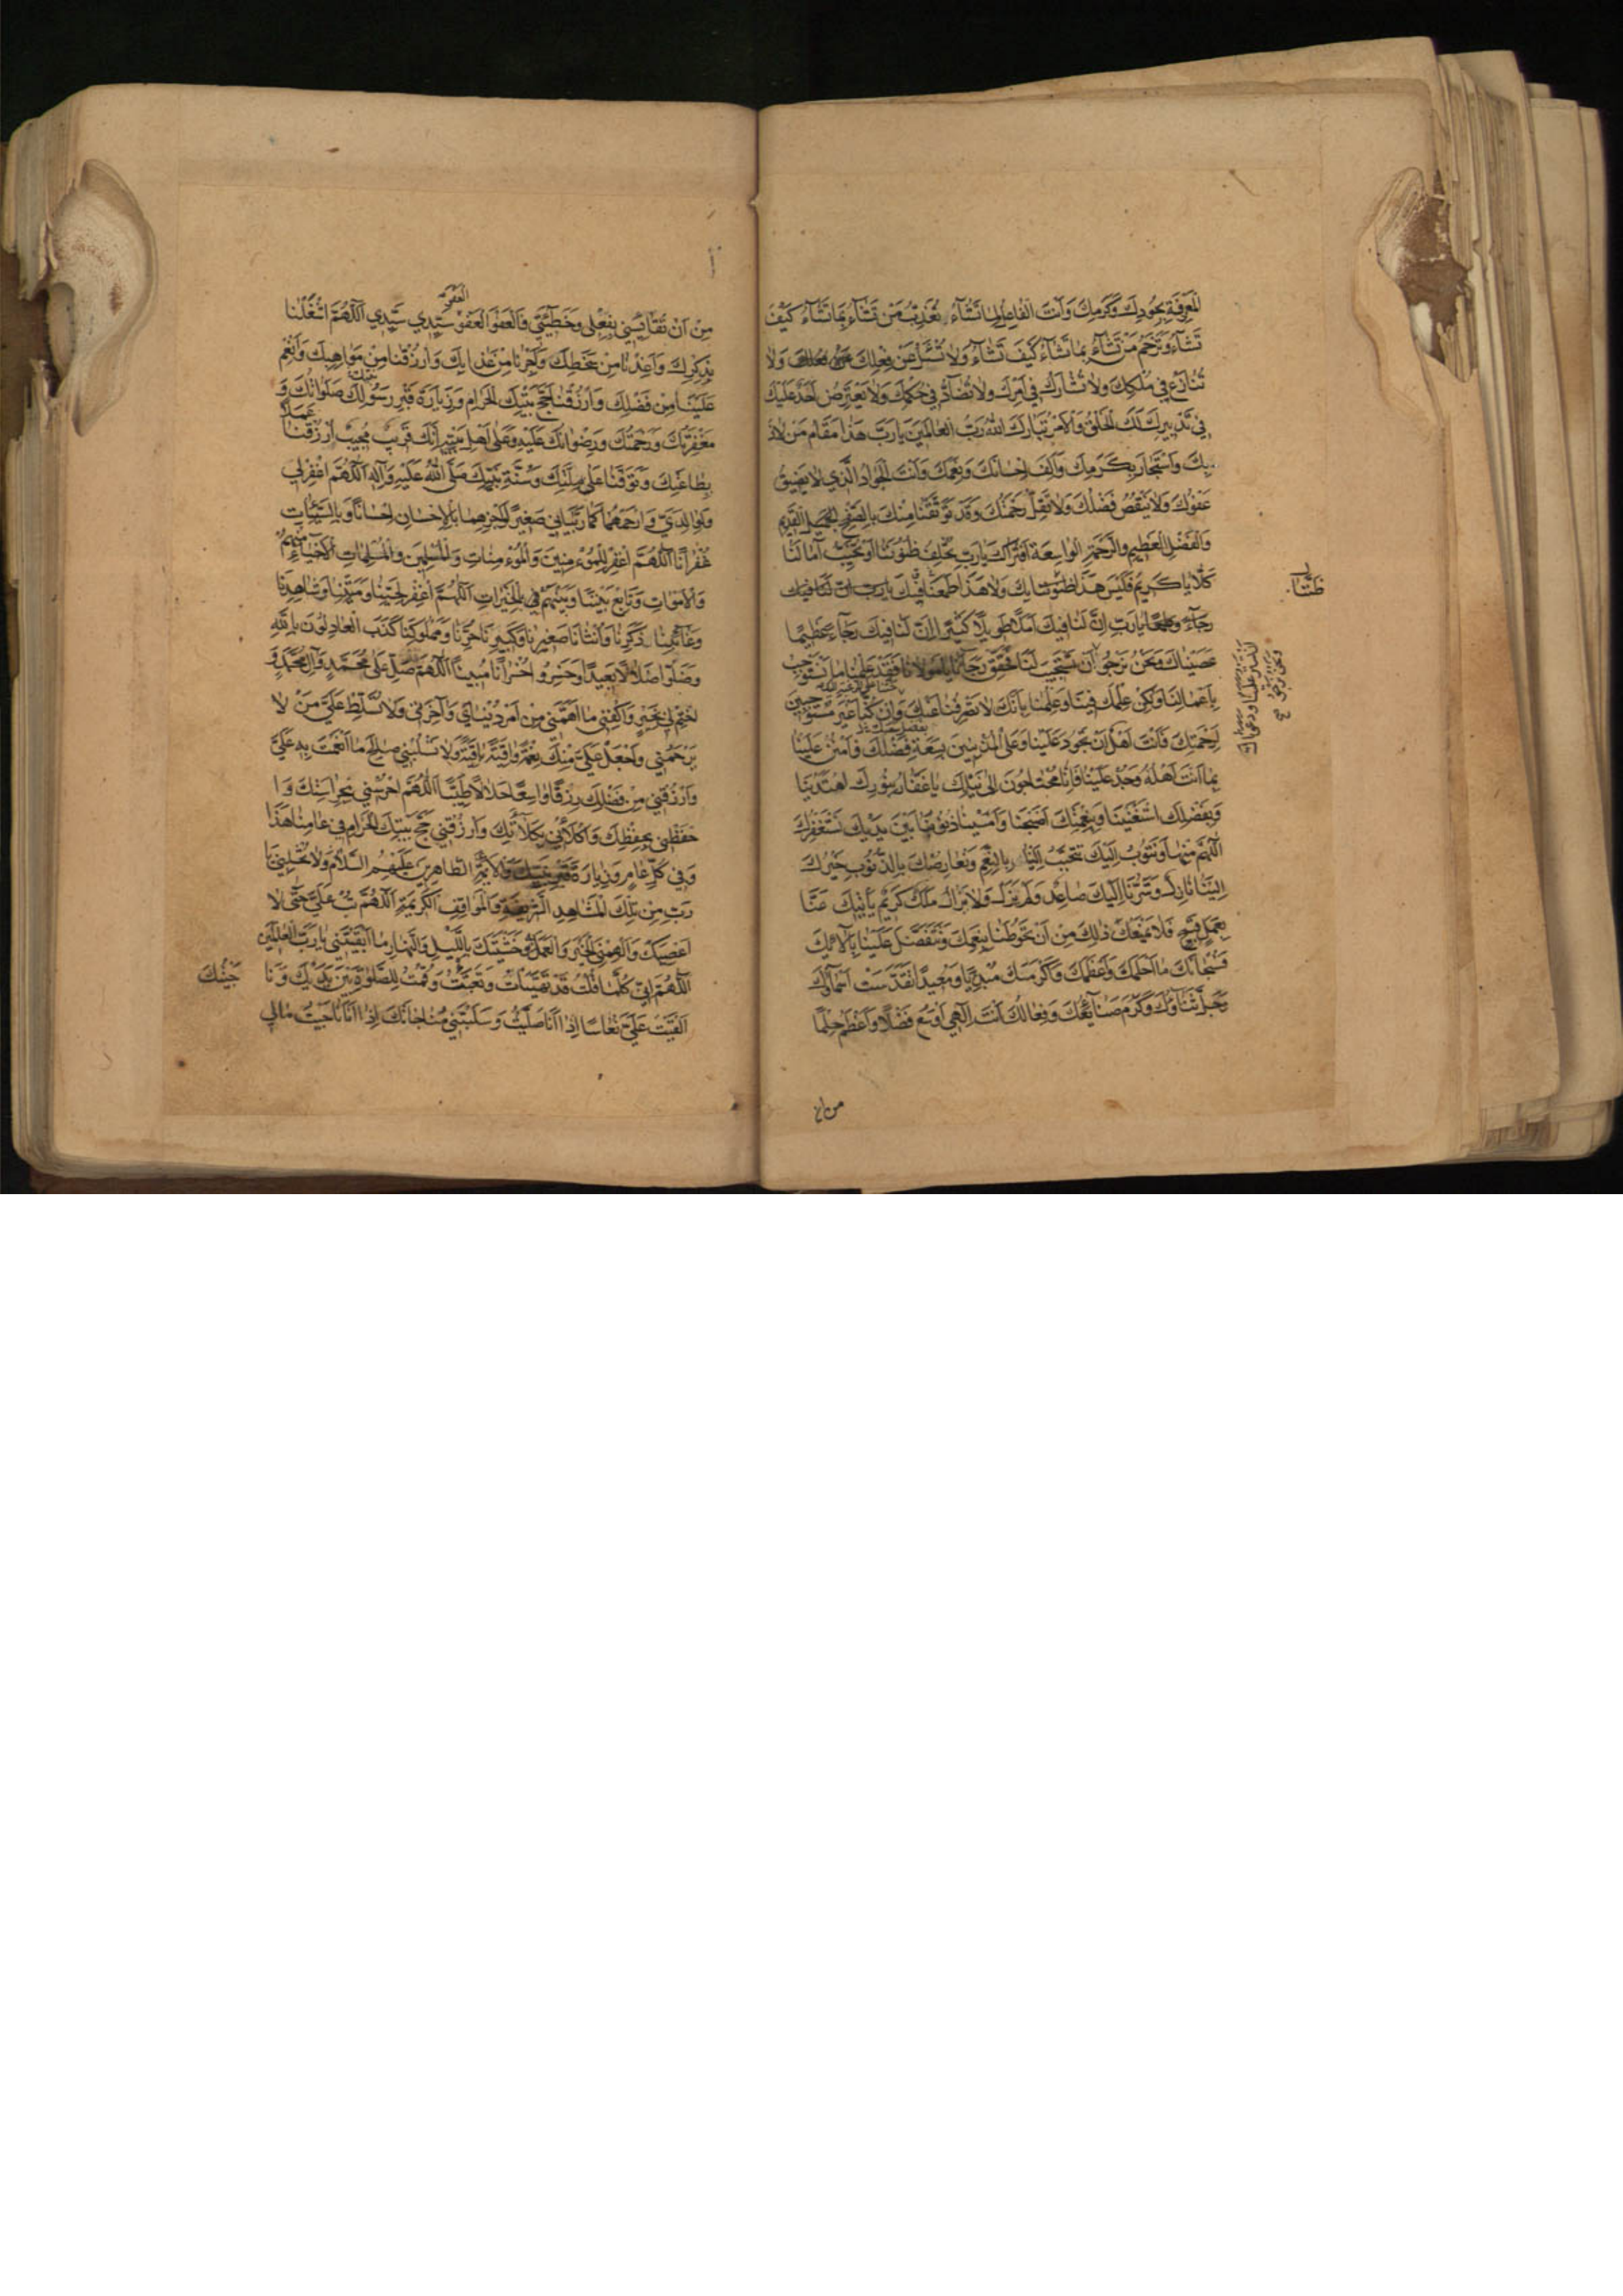 لمعرفة بجودك وكرمك وانت الفاعل لما تشاء تعذب من تشاء بما تشاء كيف
تشاء وترحم من تشاء بما تشاء كيف تشاء ولا تسئل عن فعلك ولا
تنازع في ملكك ولا تشارك في امرك ولا تضاد في حكمك ولا يعترض احد عليك
في تدبيرك لك الخلق والامر تبارك الله رب العالمين يا رب هذا مقام من لاذ
بك واستجار بكرمك والف احسانك ونعمك وانت الجواد الذي لا يضيق
عفوك ولا ينقص فضلك ولا تقل رحمتك وقد توثقنا منك بالصفح القديم
والفضل العظيم والرحمة الواسعة افتراك يا رب تخلف ظنوننا او تخيب آمالنا
كلا يا كريم فليس هذا ظنوننا بك ولا هذا طمعنا فيك يا رب ان لنا فيك
رجاء يا رب ان لنا فيك املا طويلا كثيرا ان لنا فيك رجاء عظيما
عصيناك ونحن نرجو ان تستجيب لنا فحقق رجائنا يا مولانا فقد علمنا ما نستوجب
باعمالنا ولكن علمك فينا وعلمنا بانك لا تصرفنا عنك وان كنا غير مستوجبين
لرحمتك فانت اهل ان تجود علينا وعلى المذنبين بسعة فضلك فامنن علينا
بما انت اهله وجد علينا فانا محتاجون الى نيلك يا غفار بنورك اهتدينا
وبفضلك استغنينا وبنعمتك اصبحنا وامسينا ذنوبنا بين يديك نستغفرك
اللهم منها ونتوب اليك تتحبب الينا بالنعم ونعارضك بالذنوب خيرك
الينا نازل وشرنا اليك صاعد ولم يزل ولا يزال ملك كريم يأتيك عنا
بعمل قبيح فلا يمنعك ذلك من ان تحوطنا بنعمك وتتفضل علينا بآلائك
فسبحانك ما احلمك واعظمك واكرمك مبديا ومعيدا تقدست اسماؤك
وجل ثناؤك وكرم صنائعك وفعالك انت الهي اوسع فضلا واعظم حلما
من ان
العفو
من ان تقايسني بفعلي وخطيئتي فالعفو العفو سيدي سيدي اللهم اشغلنا
بذكرك واعذنا من سخطك واجرنا من عذابك وارزقنا من مواهبك وانعم
علينا من فضلك وارزقنا حج بيتك الحرام وزيارة قبر رسولك صلواتك و
مغفرتك ورحمتك ورضوانك عليه وعلى اهل بيته انك قريب مجيب ارزقنا عملا
بطاعتك وتوفنا على ملتك وسنة نبيك صلى الله عليه وآله اللهم اغفر لي
ولوالدي وارحمهما كما ربياني صغيرا اجزهما بالاحسان احسانا وبالسيئات
غفرانا اللهم اغفر للمؤمنين والمؤمنات والمسلمين والمسلمات الاحياء منهم
والاموات وتابع بيننا وبينهم في الخيرات اللهم اغفر لحينا وميتنا وشاهدنا
وغائبنا ذكرنا وانثانا صغيرنا وكبيرنا حرنا ومملوكنا كذب العادلون بالله
وضلوا ضلالا بعيدا وخسروا خسرانا مبينا اللهم صل على محمد وآل محمد و
اختم لي بخير واكفني ما اهمني من امر دنياي وآخرتي ولا تسلط علي من لا
يرحمني واجعل علي منك نعمة واقية باقية ولا تسلبني صالح ما انعمت به علي
وارزقني من فضلك رزقا واسعا حلالا طيبا اللهم احرسني بحراستك وا
حفظني بحفظك واكلأني بكلائتك وارزقني حج بيتك الحرام في عامنا هذا
وفي كل عام وزيارة قبر نبيك والائمة الطاهرين عليهم السلام ولا تخلني يا
رب من تلك المشاهد الشريفة والمواقف الكريمة اللهم تب علي حتى لا
اعصيك والهمني الخير والعمل به وخشيتك بالليل والنهار ما ابقيتني يا رب العالمين
اللهم اني كلما قلت قد تهيأت وتعبيت وقمت للصلوة بين يديك ونا جيتك
القيت علي نعاسا اذا انا صليت وسلبتني مناجاتك اذا انا ناجيت مالي